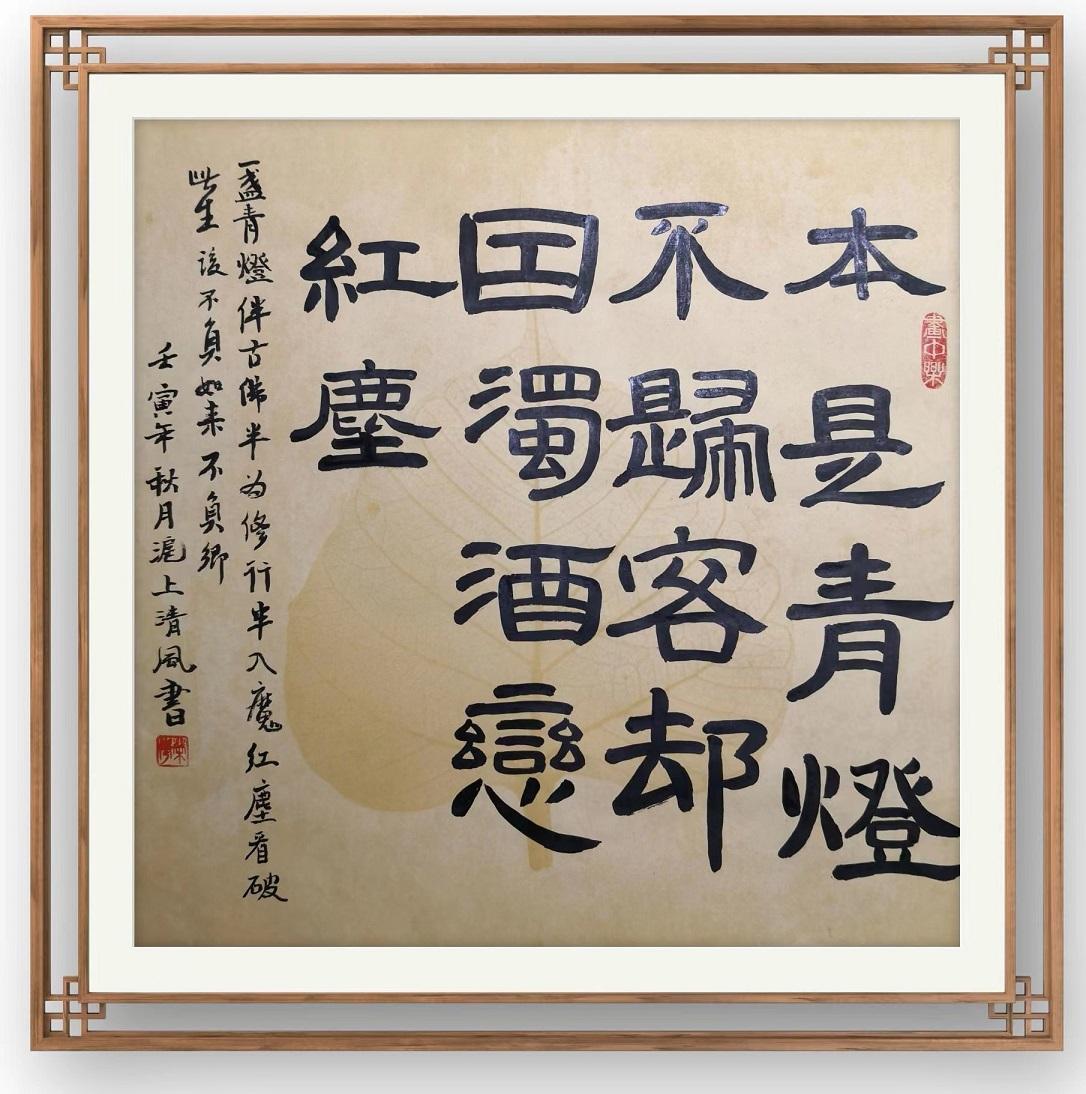 本是青燈
畫中樂
不歸客却
因濁酒戀
紅塵
一盏青燈伴古佛半为修行半入魔红塵看破
此生该不負如来不負卿
壬寅年秋月滬上清風書